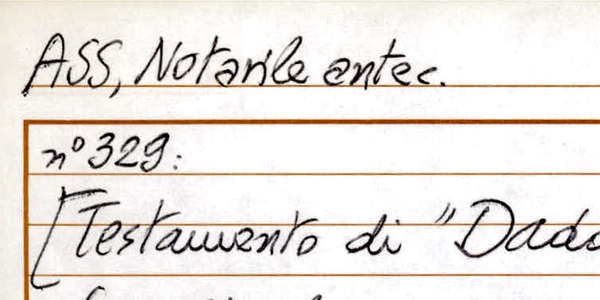 ASS, Notarile antec.
n° 329:
[Testamento di "Dado